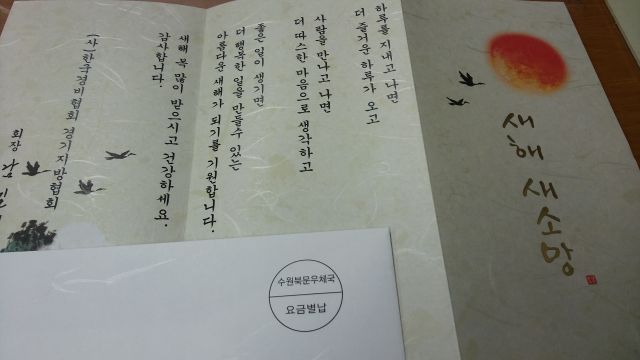 새해 새소망
하루를 지내고 나면
더 즐거운 하루가 오고
사람을 만나고 나면
더 따스한 마음으로 생각하고
좋은 일이 생기면
더 행복한 일을 만들수 있는
아름다운 새해가 되기를 기원합니다.
새해 복 많이 받으시고 건강하세요.
감사합니다.
(사)한국경비협회 경기지방협회
회장 남
수원북문우체국
요금별납